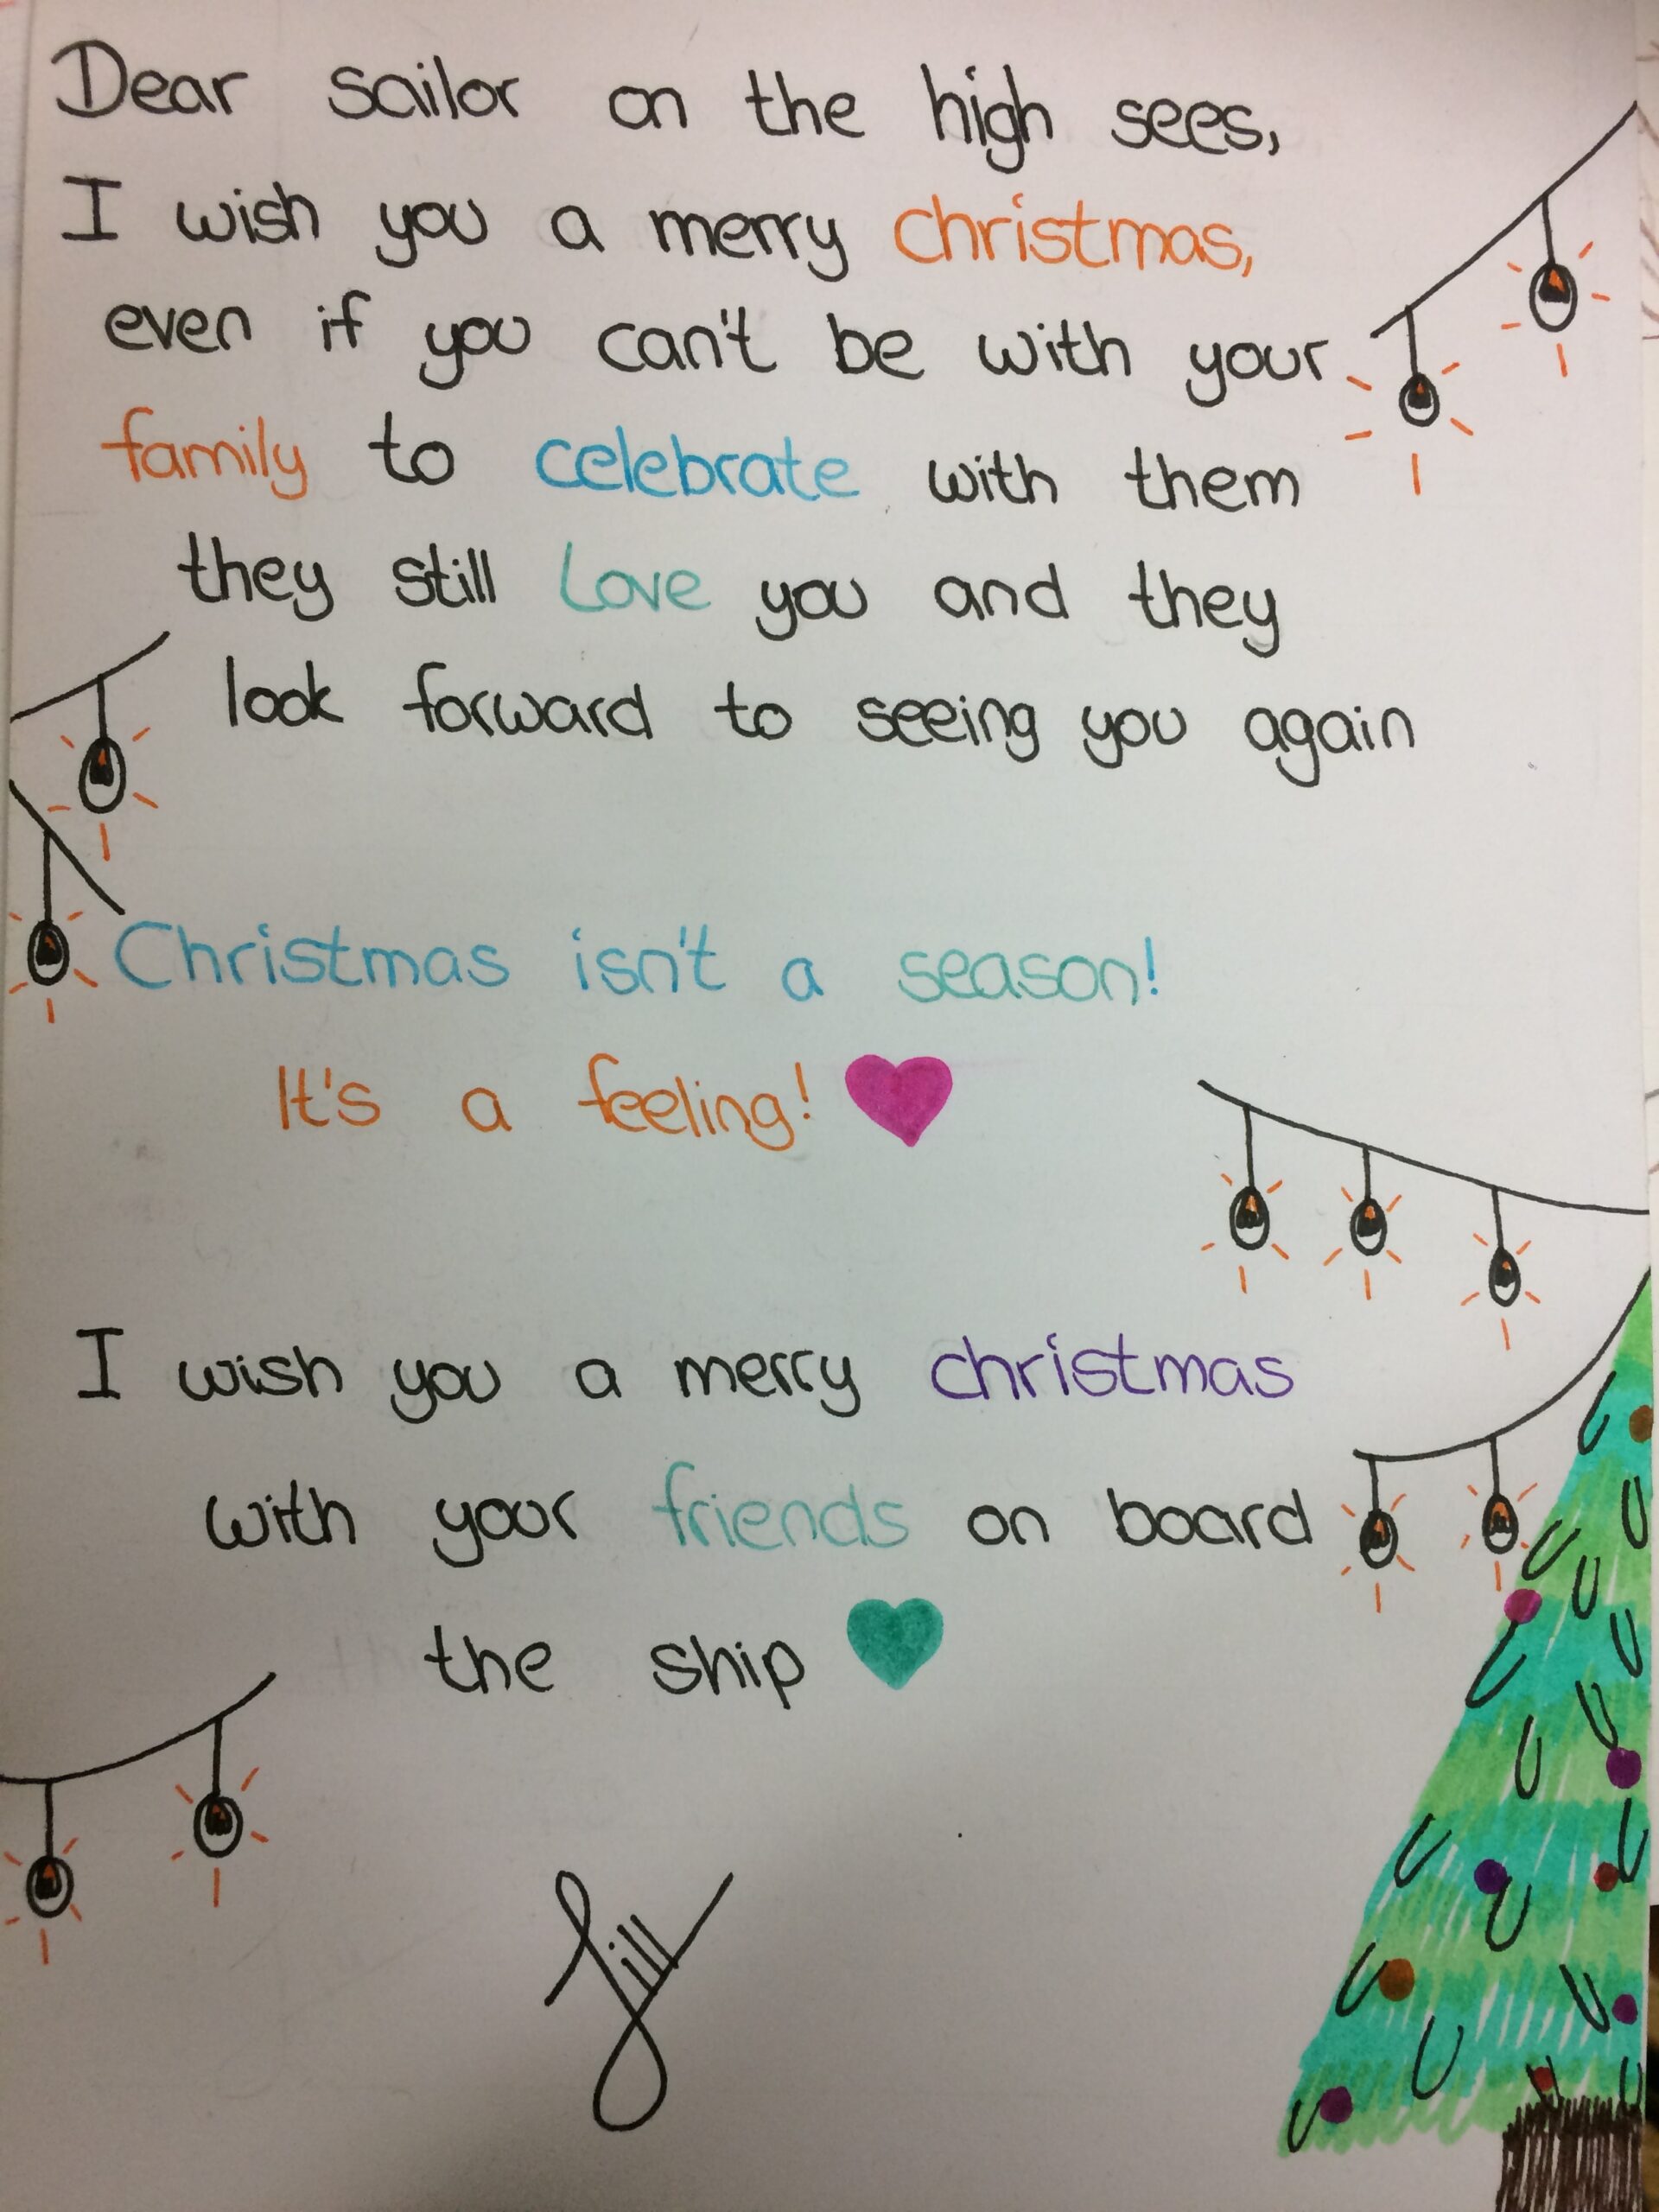 Dear sailor on the high sees,
I wish you a merry christmas,
even if you can't be with your
family to celebrate with them
they still love you and they
look forward to seeing you again
Christmas isn't a season!
It's a feeling!
I wish you a merry christmas
with your friends on board
the ship
Jill